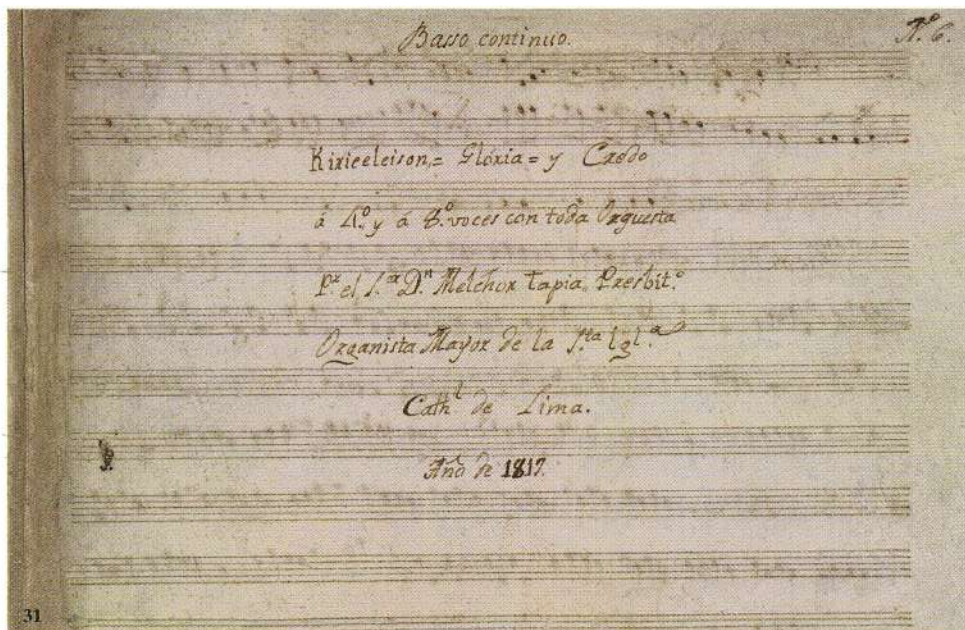 Basso continuo.
N.º 6.
Kirieeleison,= Glória = y Credo
á 4.º y á 8.º voces con toda Orquesta
P.r el S.or D.n Melchor tapia Presbit.º
Organista Mayor de la S.ta Igl.a
Cath.l de Lima.
Año de 1817.
31